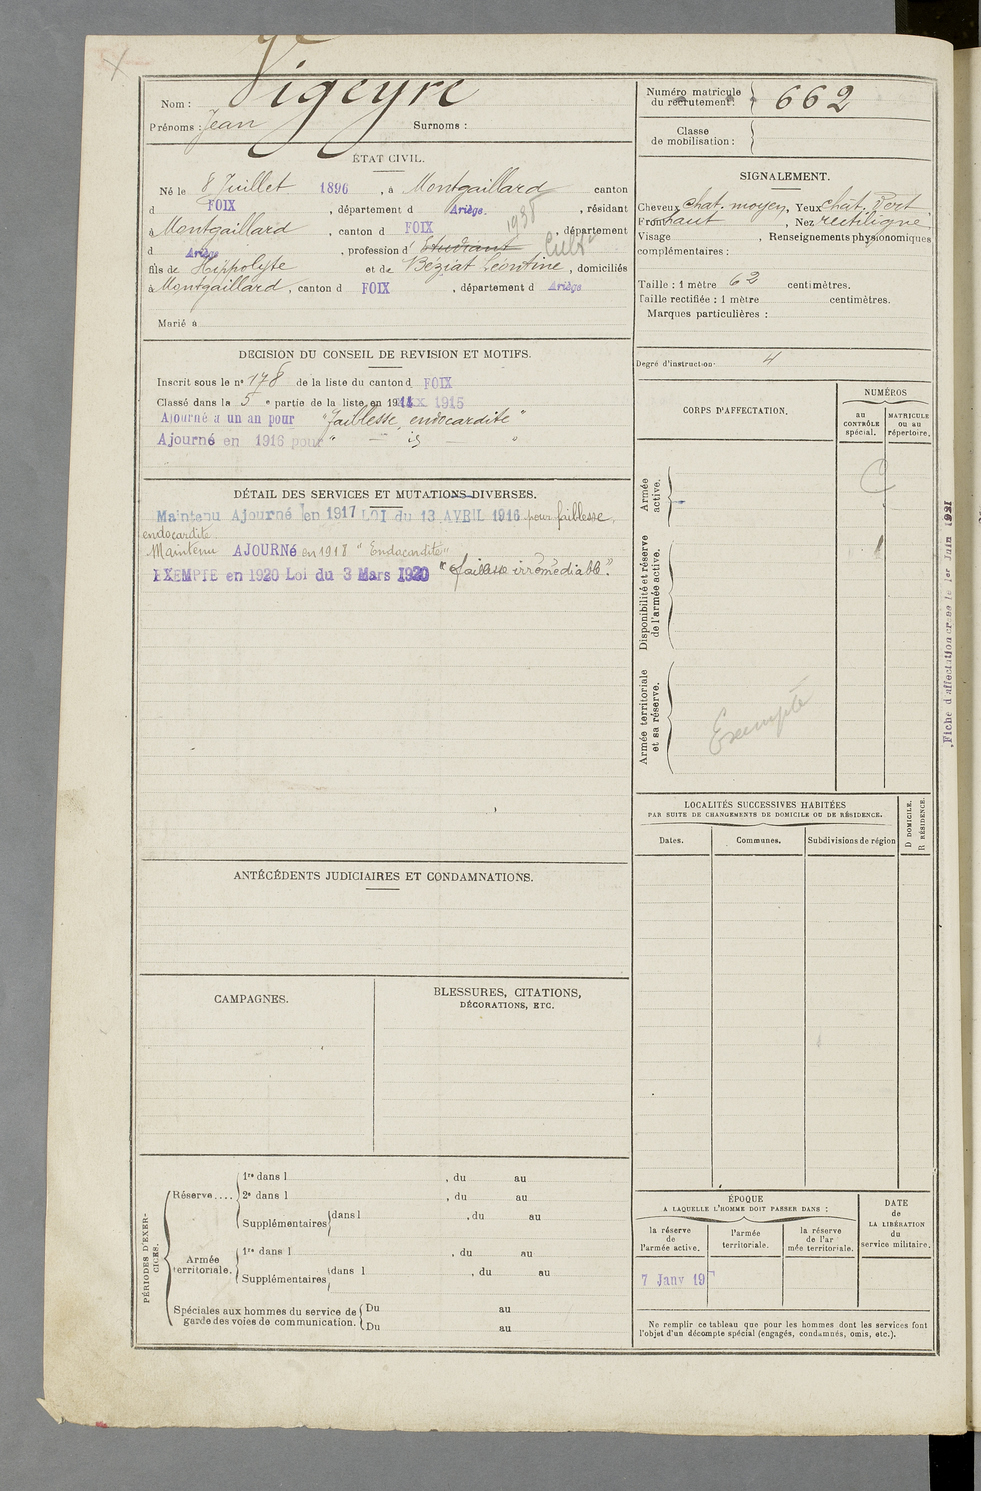 Nom : Vigeyre
Prénoms : Jean Surnoms :
Numéro matricule du recrutement : 662
Classe de mobilisation :
ÉTAT CIVIL.
Né le 8 Juillet 1896, à Montgaillard canton
d FOIX, département d Ariège, résidant
à Montgaillard, canton d FOIX, département
1938
d Ariège, profession d' Etudiant Cultr
fils de Hippolyte et de Béziat Léontine, domiciliés
à Montgaillard, canton d FOIX, département d Ariège
Marié à
SIGNALEMENT.
Cheveux chat. moyen, Yeux chat. vert
Front haut, Nez rectiligne
Visage , Renseignements physionomiques
complémentaires :
Taille : 1 mètre 62 centimètres.
Taille rectifiée : 1 mètre centimètres.
Marques particulières :
Degré d'instruction : 4
DECISION DU CONSEIL DE REVISION ET MOTIFS.
Inscrit sous le n° 178 de la liste du canton d FOIX
Classé dans la 5 e partie de la liste en 19 1915
Ajourné a un an pour "faiblesse, endocardite"
Ajourné en 1916 pour " — id — "
DÉTAIL DES SERVICES ET MUTATIONS DIVERSES.
Maintenu Ajourné en 1917 LOI du 13 AVRIL 1916 pour faiblesse,
endocardite.
Maintenu AJOURNé en 1918 "Endocardite"
EXEMPTE en 1920 Loi du 3 Mars 1920 "faiblesse irrémédiable."
CORPS D'AFFECTATION.
NUMÉROS
au CONTRÔLE spécial.
MATRICULE ou au répertoire.
Armée active.
C
Disponibilité et réserve de l'armée active.
Armée territoriale et sa réserve.
Exempté
Fiche d'affectation créée le 1er Juin
LOCALITÉS SUCCESSIVES HABITÉES
PAR SUITE DE CHANGEMENTS DE DOMICILE OU DE RÉSIDENCE.
D DOMICILE.
R RÉSIDENCE.
Dates. Communes. Subdivisions de région
ANTÉCÉDENTS JUDICIAIRES ET CONDAMNATIONS.
CAMPAGNES.
BLESSURES, CITATIONS,
DÉCORATIONS, ETC.
PÉRIODES D'EXERCICES.
Réserve....
1re dans l , du au
2e dans l , du au
Supplémentaires dans l , du au
Armée territoriale.
1re dans l , du au
Supplémentaires dans l , du au
Spéciales aux hommes du service de
garde des voies de communication.
Du au
Du au
ÉPOQUE
A LAQUELLE L'HOMME DOIT PASSER DANS :
la réserve de l'armée active.
l'armée territoriale.
la réserve de l'ar mée territoriale.
DATE de LA LIBÉRATION du service militaire.
7 Janv 19
Ne remplir ce tableau que pour les hommes dont les services font
l'objet d'un décompte spécial (engagés, condamnés, omis, etc.).